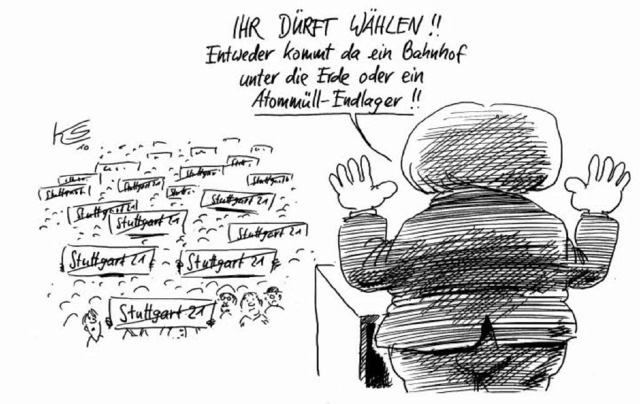 IHR DÜRFT WÄHLEN!!
Entweder kommt da ein Bahnhof
unter die Erde oder ein
Atommüll-Endlager!!
10
Stuttgart 21
Stuttgart 21
Stuttgart 21
Stuttgart 21
Stuttgart 21
Stuttgart 21
Stuttgart 21
Stuttgart 21